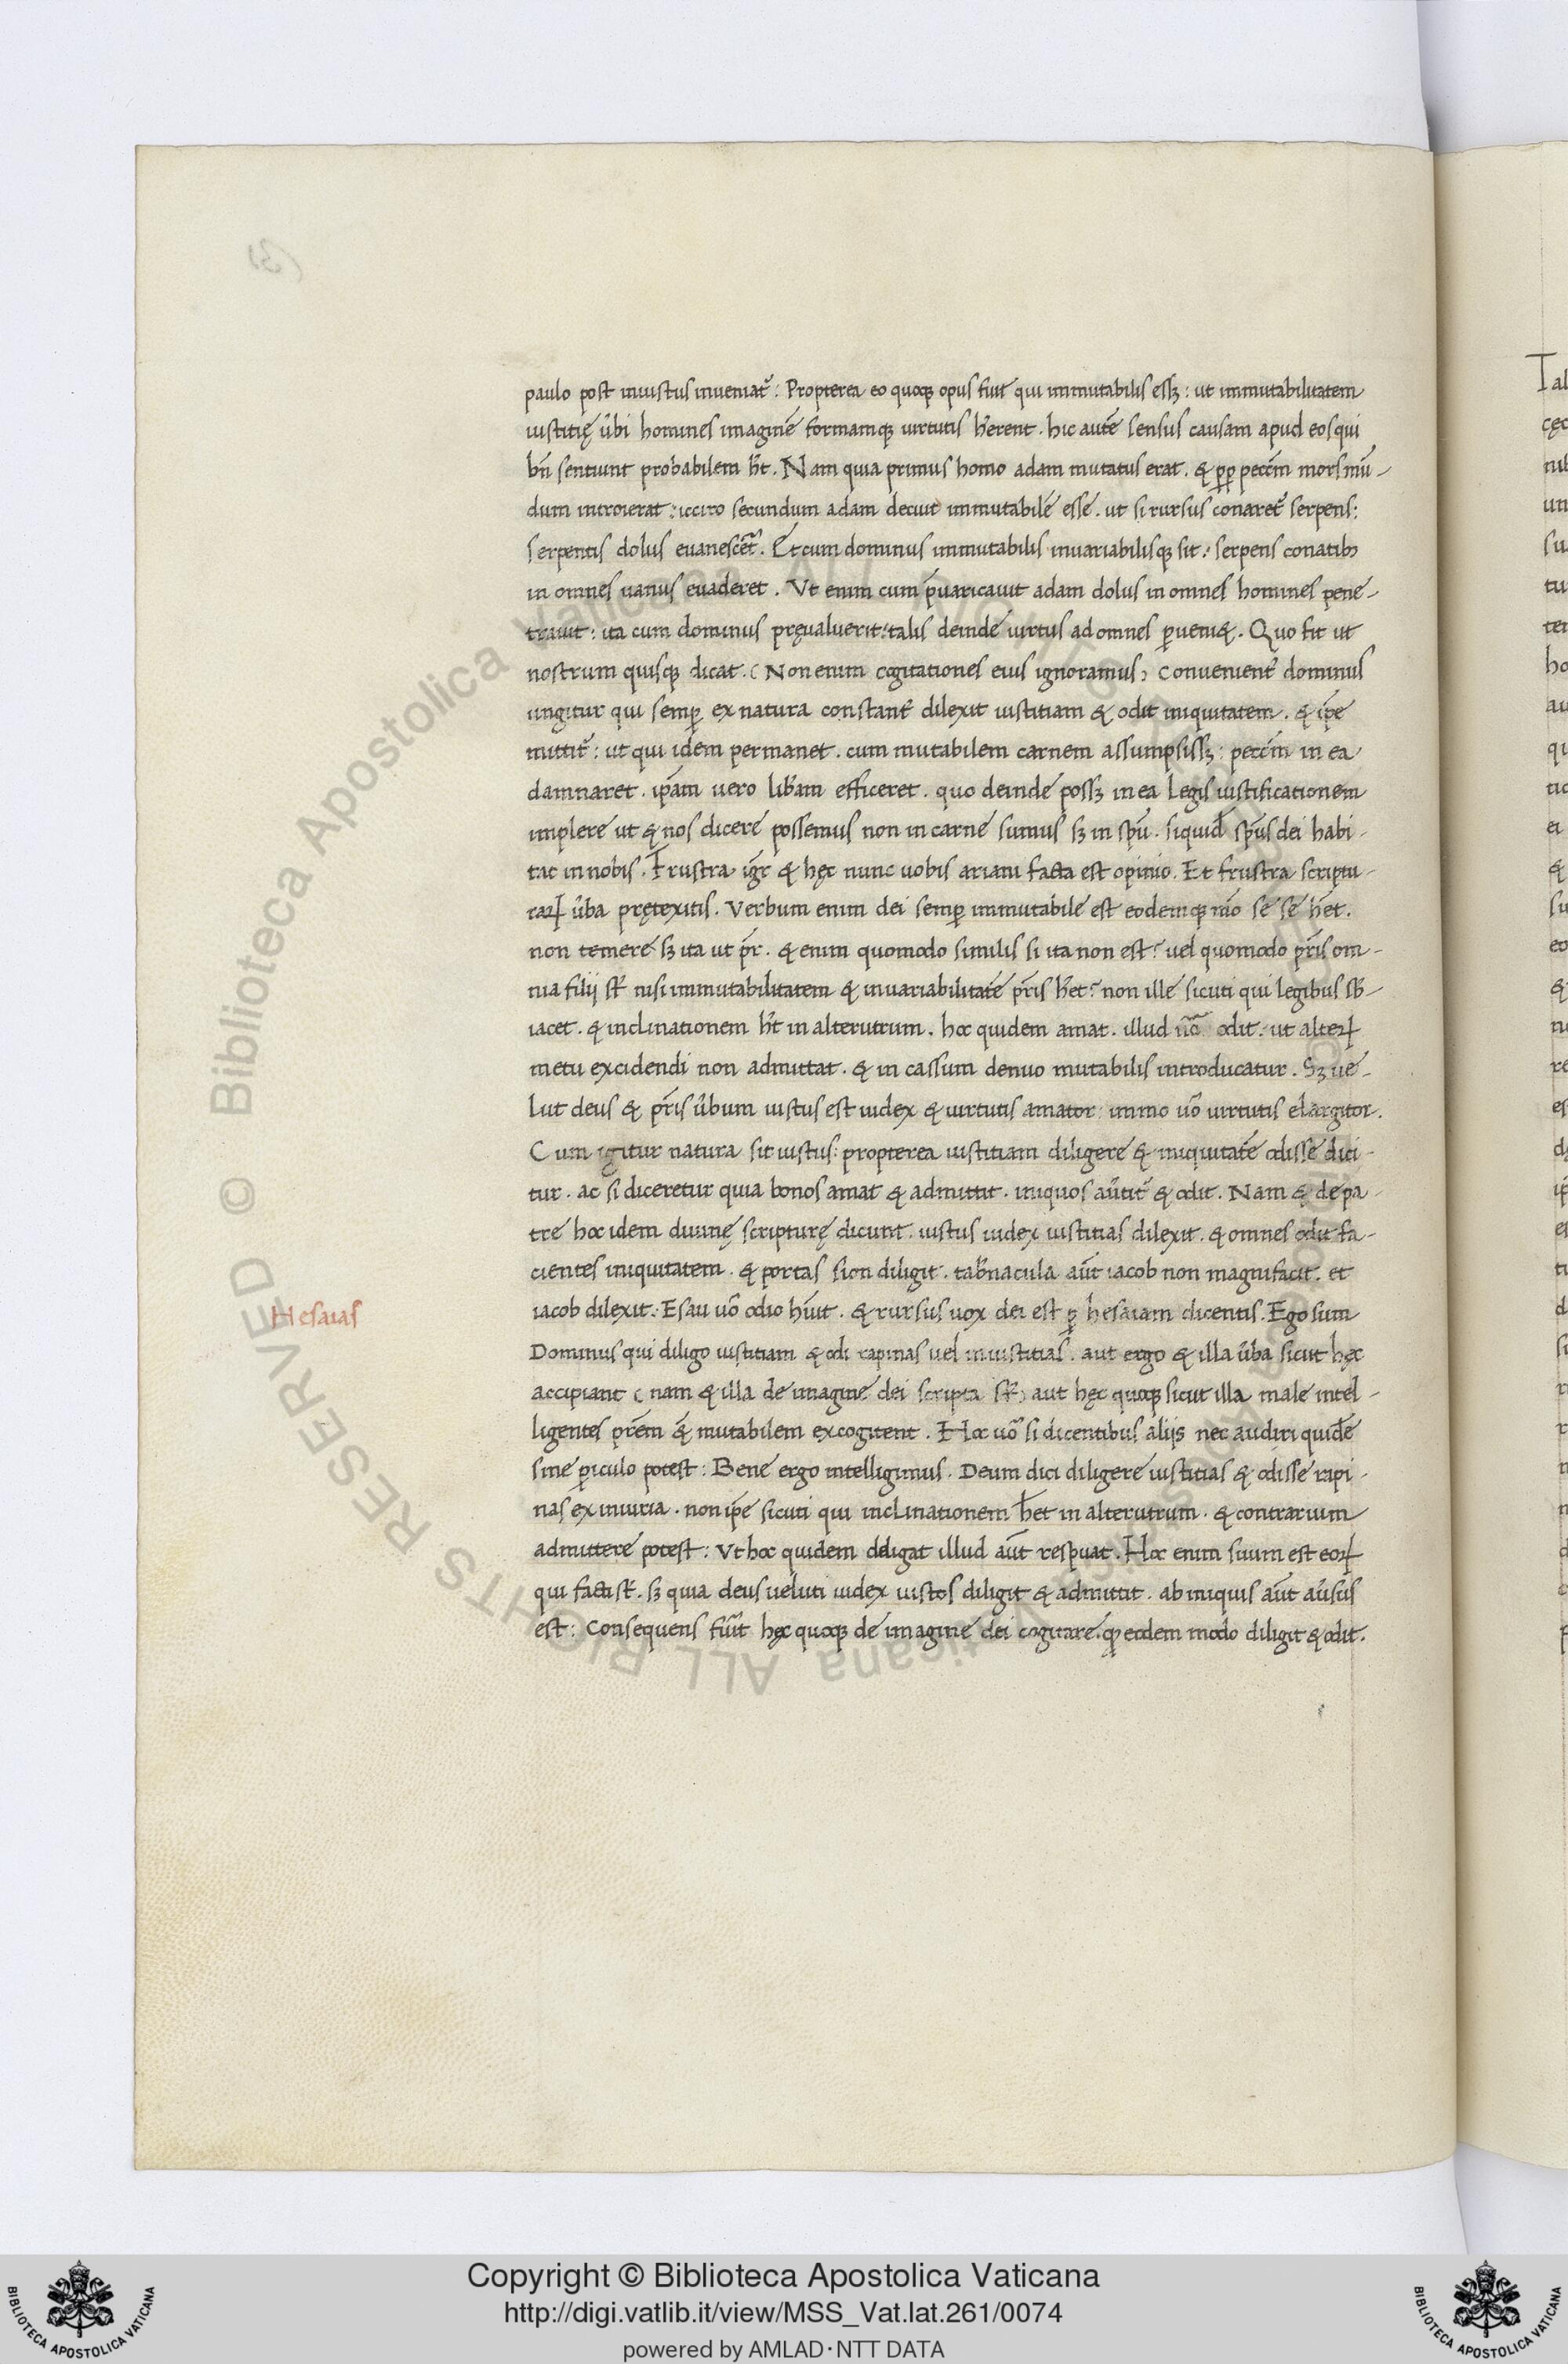 paulo post iniustus inueniat᷑: Propterea eo quoqꝫ opus fuit qui immutabilis essꝫ: ut immutabilitatem
iustitię ûbi homines imaginē formamqꝫ uirtutis hꝛ̄erent. hic autē sensus causam apud eos qui
bn̄ sentiunt probabilem hꝛ̄t. Nam quia primus homo adam mutatus erat. & ꝓp pccm̄ mors mū-
dum introierat: iccirco secundum adam decuit immutabile esse. ut si rursus conaret᷑ serpens:
serpentis dolus euanescēt᷑. Et cum dominus immutabilis inuariabilisqꝫ sit: serpens conatibꝫ
in omnes uanus euaderet. Vt enim cum p̄uaricauit adam dolus in omnes homines pene-
trauit: ita cum dominus pręualuerit: talis deinde uirtus ad omnes ꝑueniet. Quo fit ut
nostrum quisqꝫ dicat. (Non enim cogitationes eius ignoramus) Conuenient᷑ dominus
ungitur qui semꝑ ex natura constant᷑ dilexit iustitiam & odit iniquitatem. & ip̄e
mittit᷑: ut qui idem permanet. cum mutabilem carnem assumpsissꝫ: pccm̄ in ea
damnaret. ip̄am uero lib̄am efficeret. quo deinde possꝫ in ea Legis iustificationem
implere ut & nos dicere possemus non in carne sumus sꝫ in sp̄u. siquid̄ sp̄us dei habi-
tat in nobis. Frustra igr̄ & hęc nunc uobis ariani facta est opinio. Et frustra scriptu-
raꝝ ûba pręt​exitis. Verbum enim dei semꝑ immutabile est eodemqꝫ mō se se hēt.
non temere sꝫ ita ut pr̄. & enim quomodo similis si ita non est? uel quomodo pr̄is om-
nia filij st̄ nisi immutabilitatem & inuariabilitatē pr̄is hꝛ̄et? non ille sicuti qui legibus sb̄-
iacet. & inclinationem hꝛ̄t in alterutrum. hoc quidem amat. illud odit: ut alteꝝ
metu excidendi non admittat. & in cassum denuo mutabilis introducatur. Sꝫ ue-
lut deus & pr̄is ûbum iustus est iudex & uirtutis amator: immo uō uirtutis elargitor.
Cum igitur natura sit iustus: propterea iustitiam diligere & iniquitatē odisse dici-
tur. ac si diceretur quia bonos amat & admittit. iniquos aûtit᷑ & odit. Nam & de pa-
tre hoc idem diuinę scripturę dicunt. iustus iudex iustitias dilexit. & omnes odit fa-
cientes iniquitatem. & portas sion diligit. tab̄nacula aūt iacob non magnifacit. et
iacob dilexit: Esau uō odio hūit. & rursus uox dei est ꝑ hesaiam dicentis. Ego sum
Hesaias
Dominus qui diligo iustitiam & odi rapinas uel iniustitias. aut ergo & illa ûba sicut hęc
accipiant (nam & illa de imagine dei scripta st̄) aut hęc quoqꝫ sicut illa male intel-
ligentes pr̄em & mutabilem excogitent. Hoc uō si dicentibus alijs nec audiri quidē
sine ꝑiculo potest: Bene ergo intelligimus. Deum dici diligere iustitias & odisse rapi-
nas ex iniuria. non ip̄e sicuti qui inclinationem hꝛ̄et in alterutrum. & contrarium
admittere potest: Vt hoc quidem deligat illud aūt respuat. Hoc enim suum est eoꝝ
qui facti st̄. sꝫ quia deus ueluti iudex iustos diligit & admittit. ab iniquis aūt aûsus
est: Consequens fûit hęc quoqꝫ de imagine dei cogitare. ꝙ eodem modo diligit & odit.
Copyright © Biblioteca Apostolica Vaticana
http://digi.vatlib.it/view/MSS_Vat.lat.261/0074
powered by AMLAD·NTT DATA